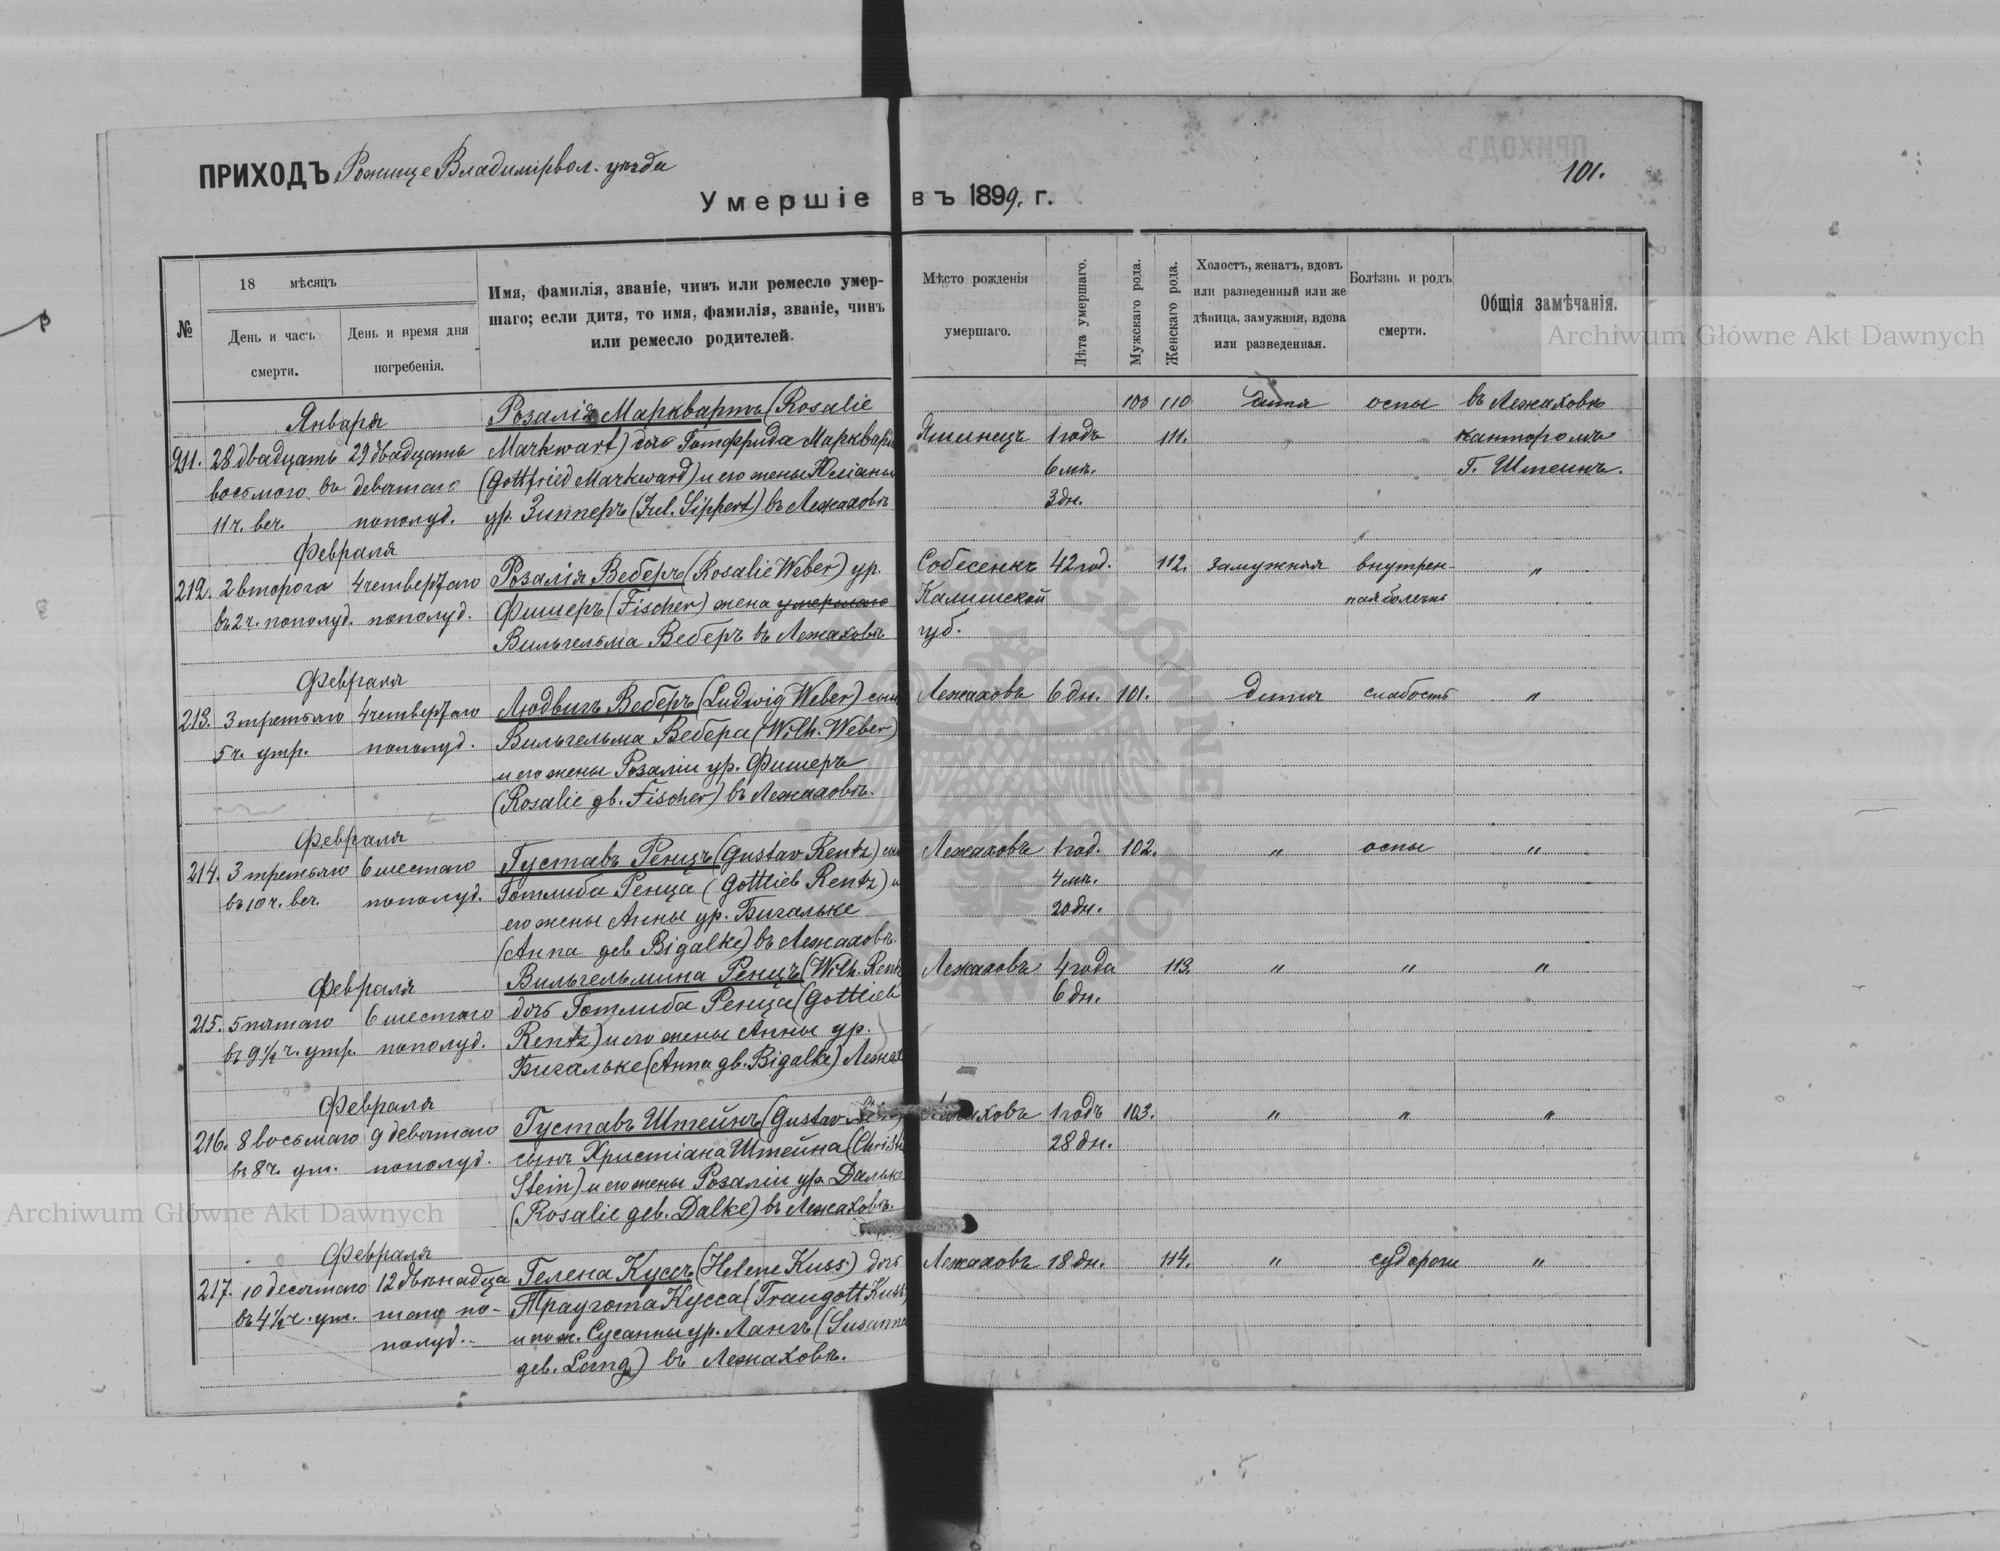 ПРИХОДЪ Рожище Владимірвол. уѣзда
101.
Умершіе въ 1899. г.
№
18 мѣсяцъ
День и часъ смерти.
День и время дня погребенія.
Имя, фамилія, званіе, чинъ или ремесло умер-
шаго; если дитя, то имя, фамилія, званіе, чинъ
или ремесло родителей.
Мѣсто рожденія
умершаго.
Лѣта умершаго.
Мужскаго рода.
Женскаго рода.
Холостъ, женатъ, вдовъ
или разведенный или же
дѣвица, замужняя, вдова
или разведенная.
Болѣзнь и родъ
смерти.
Общія замѣчанія.
Archiwum Główne Akt Dawnych
Января Розалія Марквартъ (Rosalie 100 110 дитя оспы въ Лежаховѣ
211. 28 двадцать 29 двадцать Markwart) дочь Готфрида Маркварт Яшинецъ 1 годъ 111. канторомъ
восьмого въ девятаго (Gottfried Markward) и его жены Юліаны 6 мѣ. Г. Штейнъ.
11 ч. веч. пополуд. ур. Зиппертъ (Jul. Sippert) въ Лежаховѣ 3 дн.
Февраля
212. 2 второго 4 четвертаго Розалія Веберъ (Rosalie Weber) ур. Собесенкъ 42 год. 112. замужняя внутрен- "
въ 2 ч. пополуд. пополуд. Фишеръ (Fischer) жена умершаго Калишской ная болезнь
Вильгельма Веберъ въ Лежаховѣ губ.
Февраля
213. 3 третьяго 4 четвертаго Людвигъ Веберъ (Ludwig Weber) сынъ Лежаховъ 6 дн. 101. Дитя слабость "
5 ч. утр. пополуд. Вильгельма Вебера (Wilh. Weber)
и его жены Розаліи ур. Фишеръ
(Rosalie gb. Fischer) въ Лежаховѣ.
Февраля
214. 3 третьяго 6 шестаго Густавъ Ренцъ (Gustav Rentz) сынъ Лежаховъ 1 год. 102. " оспы "
въ 10 ч. веч. пополуд. Готлиба Ренца (Gottlieb Rentz) и 4 мѣ.
его жены Анны ур. Бигальке 20 дн.
(Anna geb. Bigalke) въ Лежаховѣ.
Вильгельмина Ренцъ (Wilh. Rentz Лежаховъ 4 года 113. " " "
Февраля
215. 5 пятаго 6 шестаго дочь Готлиба Ренца (Gottlieb 6 дн.
въ 9½ ч. утр. пополуд. Rentz) и его жены Анны ур.
Бигальке (Anna gb. Bigalke) Лежах
Февраля
216. 8 восьмаго 9 девятаго Густавъ Штейнъ (Gustav 1 годъ 103. " " "
въ 8 ч. ут. пополуд. сынъ Христіана Штейна (Christ 28 дн.
Stein) и его жены Розаліи ур. Дальке
(Rosalie geb. Dalke) въ Лежаховѣ.
Archiwum Główne Akt Dawnych
Февраля
217. 10 десятаго 12 двѣнадца Гелена Куссъ (Helene Kuss) дочь Лежаховъ 18 дн. 114. " судороги "
въ 4½ ч. ут. таго по- Траугота Кусса (Traugott Kuss)
полуд. и его ж. Сусанны ур. Лангъ (Susanne
geb. Lang) въ Лежаховѣ.